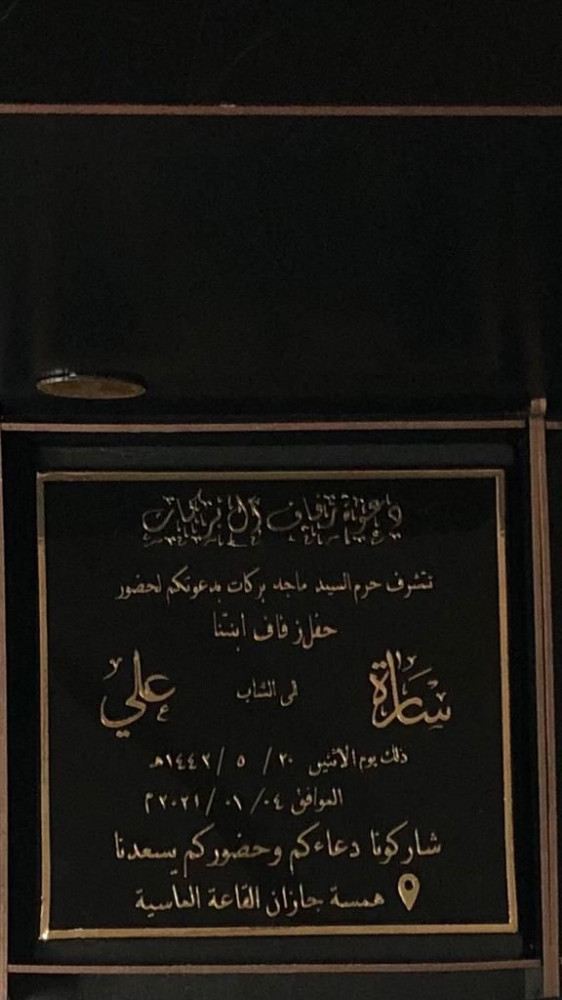 دعوة زفاف آل بركات
تتشرف حرم السيد ماجد بركات بدعوتكم لحضور
حفل زفاف ابنتنا
سارة إلى الشاب علي
ذلك يوم الأثنين ٢٠ / ٥ / ١٤٤٢هـ
الموافق ٠٤ / ٠١ / ٢٠٢١م
شاركونا دعاءكم وحضوركم يسعدنا
همسة جازان القاعة الماسية